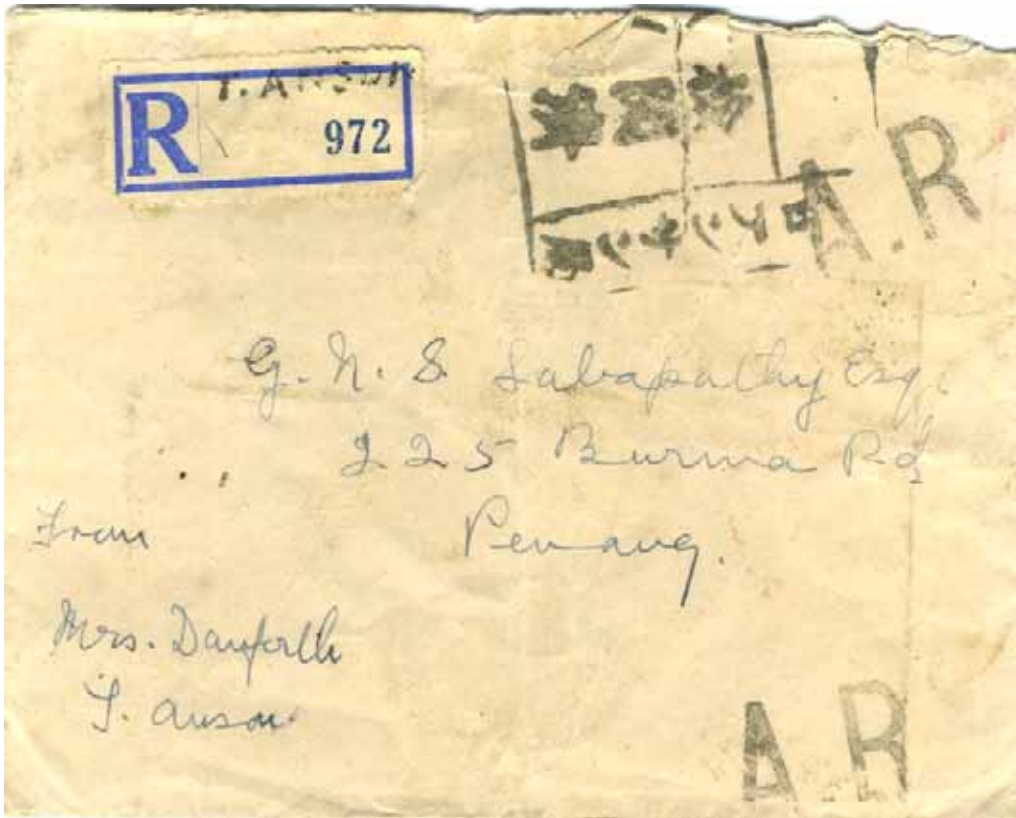 T. ANSON
R 972
A.R
G. N. S. Sabapathy Esq.
225 Burma Rd
Penang.
From
Mrs. Danforth
T. Anson
A.R